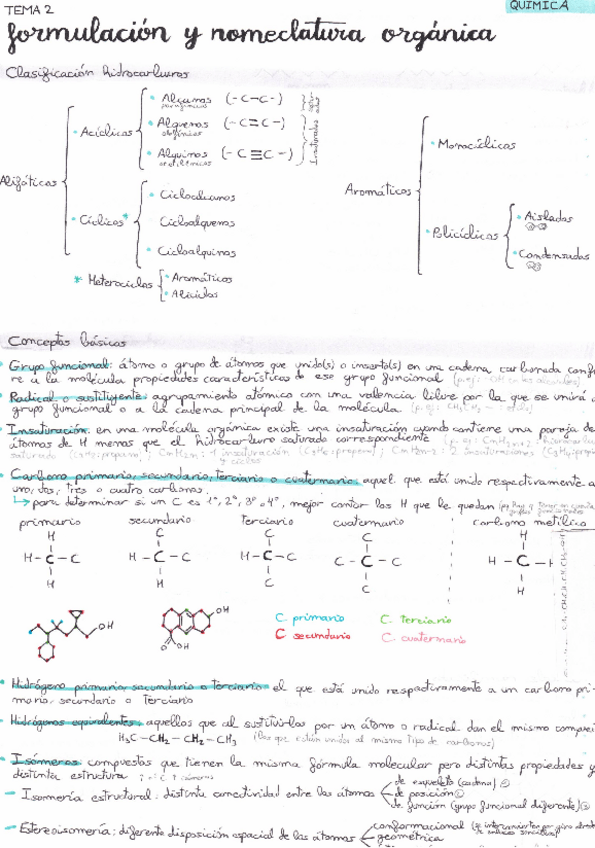 TEMA 2
QUIMICA
formulación y nomeclatura orgánica
Clasificación hidrocarburos
Alifáticos
Acíclicos
Alcanos (-C-C-)
Alquenos (-C=C-)
olefínicos
Alquinos (-C≡C-)
acetilénicos
Insaturados
Cíclicos*
Cicloalcanos
Cicloalquenos
Cicloalquinos
* Heterociclos
Aromáticos
Alicíclos
Aromáticos
Monocíclicos
Policíclicos
Aislados
Condensados
Conceptos básicos
Grupo funcional: átomo o grupo de átomos que unido(s) o inserto(s) en una cadena carbonada confie
re a la molécula propiedades características de ese grupo funcional (p.ej: -OH en los alcoholes)
Radical o sustituyente: agrupamiento atómico con una valencia libre por la que se unirá a
grupo funcional o a la cadena principal de la molécula. (p. ej:
Insaturación: en una molécula orgánica existe una insaturación cuando contiene una pareja de
átomos de H menos que el hidrocarburo saturado correspondiente
saturado (C3H8:propano); CnH2n: 1 insaturación (C3H6:propeno); CnH2n-2: 2 insaturaciones (C3H4:propi
y ciclos
Carbono primario, secundario, terciario o cuaternario: aquel que está unido respectivamente a
uno, dos, tres o cuatro carbonos.
para determinar si un C es 1º, 2º, 3º o 4º, mejor contar los H que le quedan
primario secundario terciario cuaternario carbono metílico
H C C C H
H-C-C H-C-C H-C-C C-C-C H-C-H
H H C C H
OH
OH
O OH
C. primario C. terciario
C. secundario C. cuaternario
Hidrógeno primario, secundario o terciario: el que está unido respectivamente a un carbono pri-
mario, secundario o terciario
Hidrógenos equivalentes: aquellos que al sustituirlos por un átomo o radical dan el mismo compues
H3C-CH2-CH2-CH3 (los que están unidos al mismo tipo de carbonos)
Isómeros: compuestos que tienen la misma fórmula molecular pero distintas propiedades y
distinta estructura
- Isomería estructural: distinta conectividad entre los átomos
de esqueleto (cadena) ①
de posición ②
de función (grupo funcional diferente) ③
- Estereoisomería: diferente disposición espacial de los átomos
conformacional (se interconvierten por giro alrede
de enlaces sencillos)
geométrica